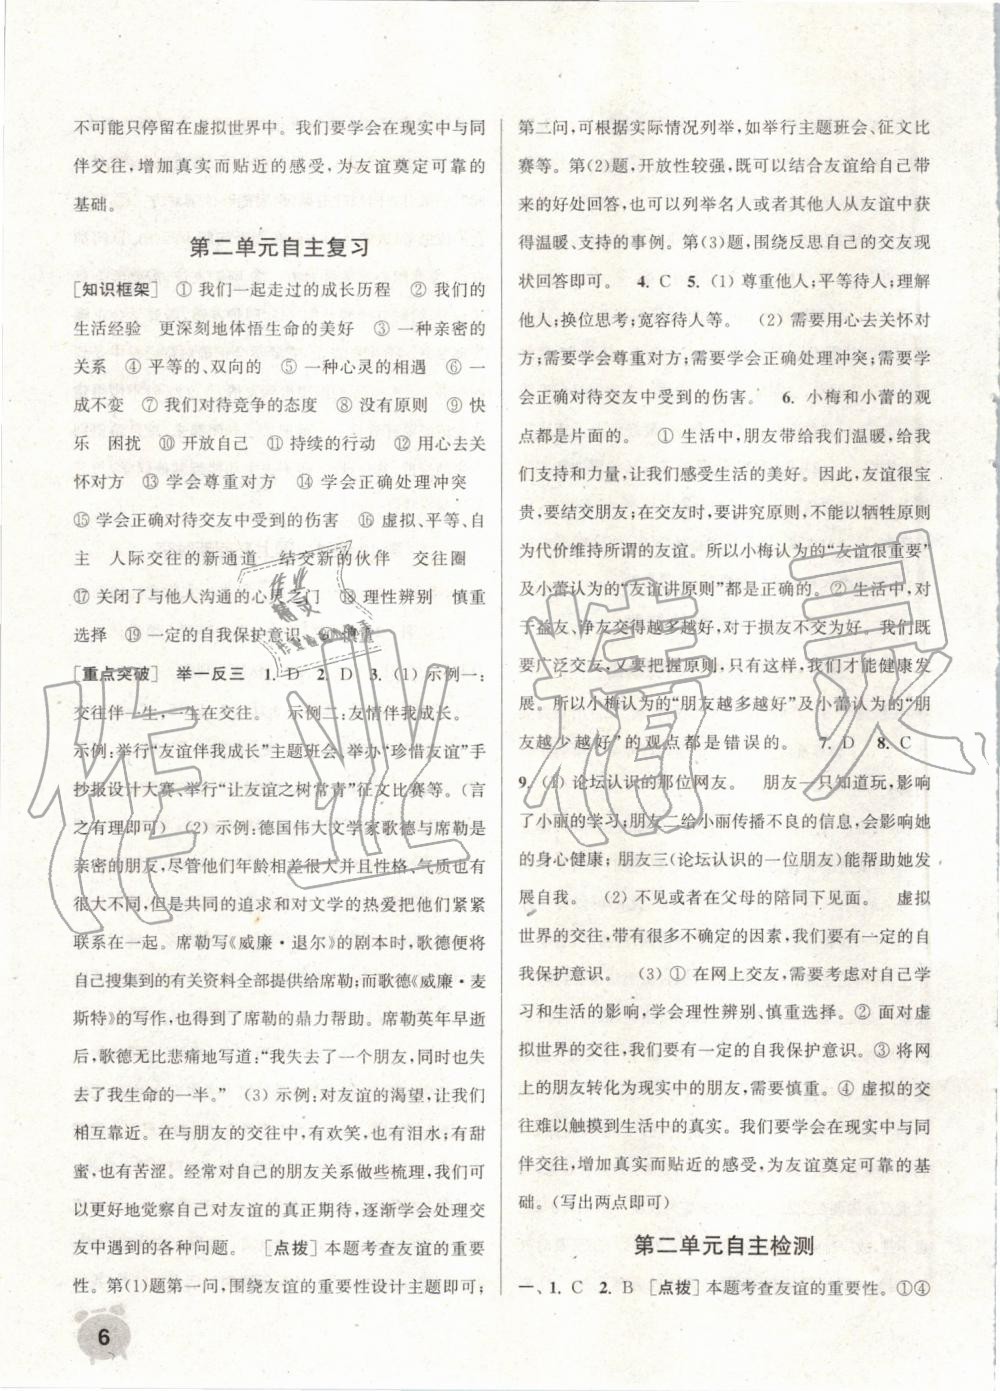 不可能只停留在虚拟世界中。我们要学会在现实中与同
伴交往，增加真实而贴近的感受，为友谊奠定可靠的
基础。
第二单元自主复习
[知识框架] ① 我们一起走过的成长历程 ② 我们的
生活经验 更深刻地体悟生命的美好 ③ 一种亲密的
关系 ④ 平等的、双向的 ⑤ 一种心灵的相遇 ⑥ 一
成不变 ⑦ 我们对待竞争的态度 ⑧ 没有原则 ⑨ 快
乐 困扰 ⑩ 开放自己 ⑪ 持续的行动 ⑫ 用心去关
怀对方 ⑬ 学会尊重对方 ⑭ 学会正确处理冲突
⑮ 学会正确对待交友中受到的伤害 ⑯ 虚拟、平等、自
主 人际交往的新通道 结交新的伙伴 交往圈
⑰ 关闭了与他人沟通的心灵之门 ⑱ 理性辨别 慎重
选择 ⑲ 一定的自我保护意识 ⑳ 慎重
[重点突破] 举一反三 1. D 2. D 3.（1）示例一：
交往伴一生，一生在交往。 示例二：友情伴我成长。
示例：举行“友谊伴我成长”主题班会、举办“珍惜友谊”手
抄报设计大赛、举行“让友谊之树常青”征文比赛等。（言
之有理即可）（2）示例：德国伟大文学家歌德与席勒是
亲密的朋友，尽管他们年龄相差很大并且性格、气质也有
很大不同，但是共同的追求和对文学的热爱把他们紧紧
联系在一起。席勒写《威廉·退尔》的剧本时，歌德便将
自己搜集到的有关资料全部提供给席勒；而歌德《威廉·麦
斯特》的写作，也得到了席勒的鼎力帮助。席勒英年早逝
后，歌德无比悲痛地写道：“我失去了一个朋友，同时也失
去了我生命的一半。”（3）示例：对友谊的渴望，让我们
相互靠近。在与朋友的交往中，有欢笑，也有泪水；有甜
蜜，也有苦涩。经常对自己的朋友关系做些梳理，我们就
可以更好地觉察自己对友谊的真正期待，逐渐学会处理交
友中遇到的各种问题。 [点拨] 本题考查友谊的重要
性。第（1）题第一问，围绕友谊的重要性设计主题即可；
6
第二问，可根据实际情况列举，如举行主题班会、征文比
赛等。第（2）题，开放性较强，既可以结合友谊给自己带
来的好处回答，也可以列举名人或者其他人从友谊中获
得温暖、支持的事例。第（3）题，围绕反思自己的交友现
状回答即可。 4. C 5.（1）尊重他人；平等待人；理解
他人；换位思考；宽容待人等。 （2）需要用心去关怀对
方；需要学会尊重对方；需要学会正确处理冲突；需要学
会正确对待交友中受到的伤害。 6. 小梅和小蕾的观
点都是片面的。 ① 生活中，朋友带给我们温暖，给我
们支持和力量，让我们感受生活的美好。因此，友谊很宝
贵，要结交朋友；在交友时，要讲究原则，不能以牺牲原则
为代价维持所谓的友谊。所以小梅认为的“友谊很重要”
及小蕾认为的“友谊讲原则”都是正确的。② 生活中，对
于益友、净友交得越多越好，对于损友不交为好。我们既
要广泛交友、又要把握原则，这样的友谊才有助健康发
展。所以小梅认为的“朋友越多越好”及小蕾认为的“朋
友越少越好”的观点都是错误的。 7. D 8. C
9.（1）论坛认识的那位网友。 朋友一只知道玩，影响
了小丽的学习；朋友二给小丽传播不良的信息，会影响她
的身心健康；朋友三（论坛认识的一位朋友）能帮助她发
展自我。（2）不见或者在父母的陪同下见面。 虚拟
世界的交往，带有很多不确定的因素，我们要有一定的自
我保护意识。 （3）① 在网上交友，需要考虑对自己学
习和生活的影响，学会理性辨别、慎重选择。② 面对虚
拟世界的交往，我们要有一定的自我保护意识。③ 将网
上的朋友转化为现实中的朋友，需要慎重。④ 虚拟的交
往难以触摸到生活中的真实。我们要学会在现实中与同
伴交往，增加真实而贴近的感受，为友谊奠定可靠的基
础。（写出两点即可）
第二单元自主检测
一、1. C 2. B [点拨] 本题考查友谊的重要性。①④
作业精灵